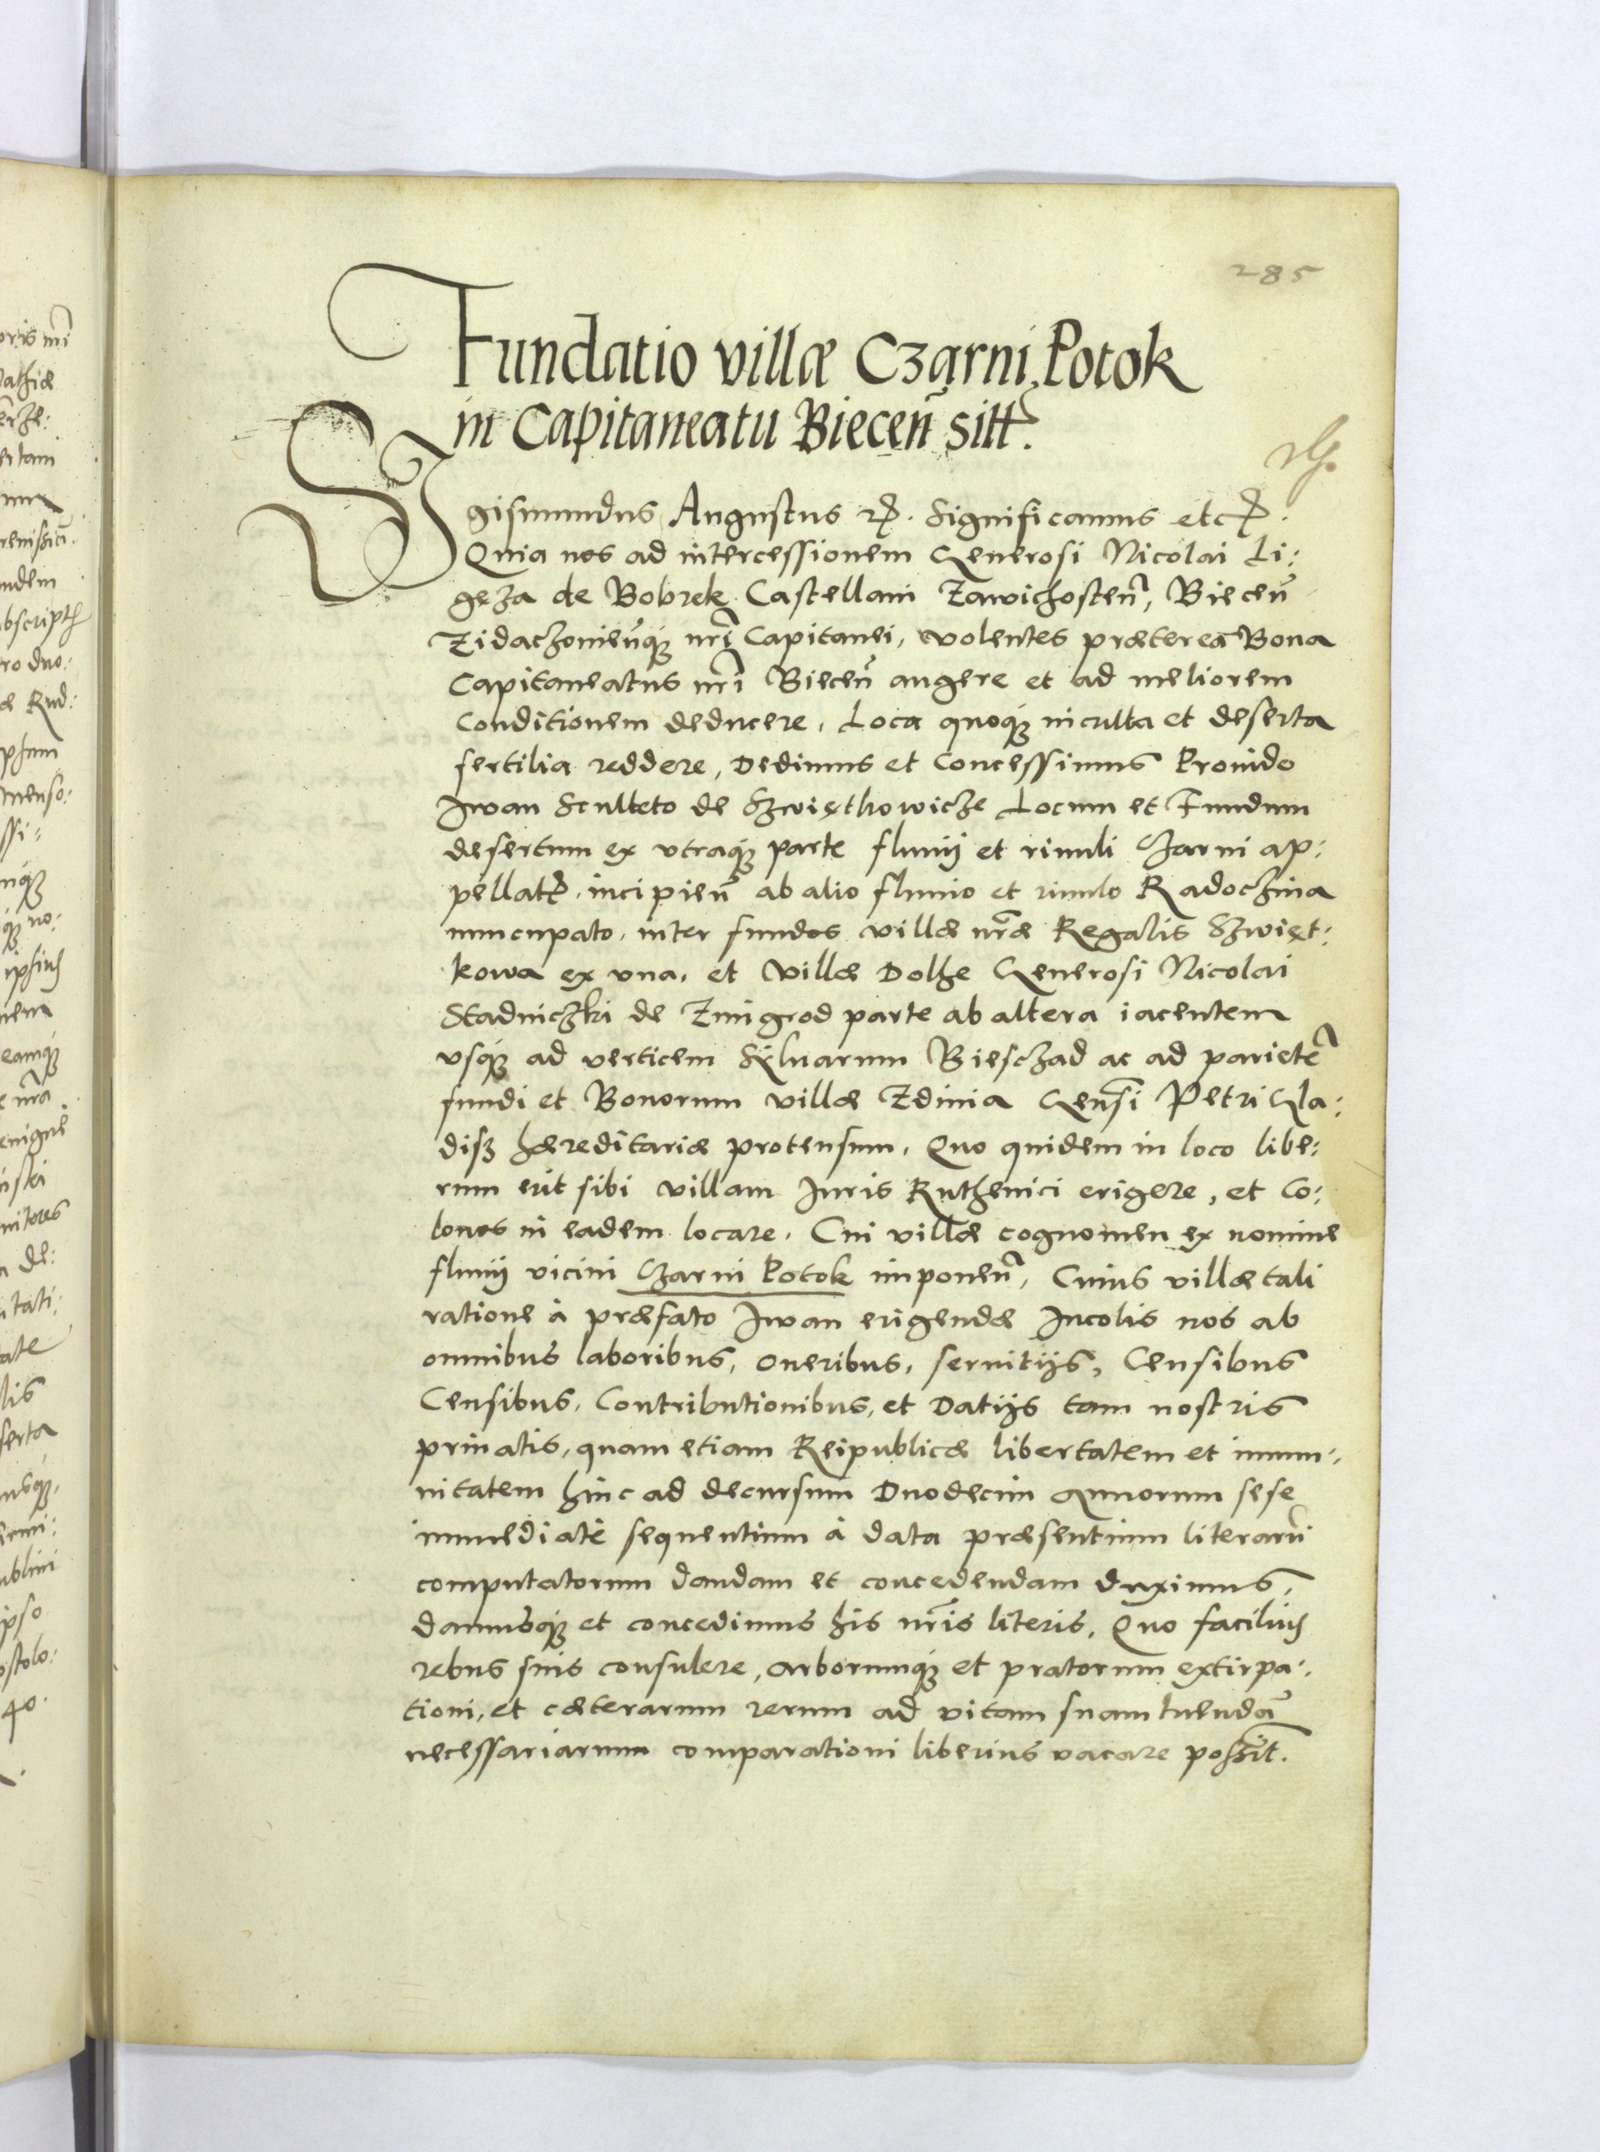 285
Fundatio villæ Czarni Potok
in Capitaneatu Biecen̄ sitt.
Sigismundus Augustus Significamus etc.
Quia nos ad intercessionem Generosi Nicolai Li:
geza de Bobrek Castellani Zawichosten̄, Biecen̄
Zidaczonien̄q; nr̄i Capitanei, volentes præterea Bona
Capitaneatus nr̄i Biecen̄ augere et ad meliorem
Conditionem deducere, Loca quoq; inculta et deserta
fertilia reddere, Dedimus et Concessimus Prouido
Iwan Sculteto de Szwięthowicze Locum et Fundum
desertum ex vtraq; parte fluuij et riuuli Czarni ap:
pellat. incipien̄ ab alio fluuio et riuulo Radoczina
nuncupato, inter fundos villæ nr̄æ Regalis Szwięt:
kowa ex vna, et Villæ Dolhe Generosi Nicolai
Stadniczki de Zmigrod parte ab altera iacentem
vsq; ad verticem Syluarum Biesczad ac ad parietē
fundi et Bonorum villæ Zdinia Gensi Petri Gla:
disz hæreditariæ protensum, Quo quidem in loco libe:
rum erit sibi villam Iuris Ruthenici erigere, et Co:
lonos in eadem locare. Cui villæ cognomen ex nomine
fluuij vicini Czarni Potok imponen̄, Cuius villæ tali
ratione à præfato Iwan erigendæ Incolis nos ab
omnibus laboribus, oneribus, seruitijs, Censibus
Censibus, Contributionibus, et Datijs tam nostris
priuatis, quam etiam Reipublicæ libertatem et immu:
nitatem hinc ad decursum Duodecim annorum sese
immediatè sequentium à data præsentium literarū
computatorum dandam et concedendam duximus,
damusq; et concedimus his nr̄is literis, Quo facilius
rebus suis consulere, arborumq; et pratorum extirpa:
tioni, et cæterarum rerum ad vitam suam tuendā
necessariarum comparationi liberius vacare possīt.